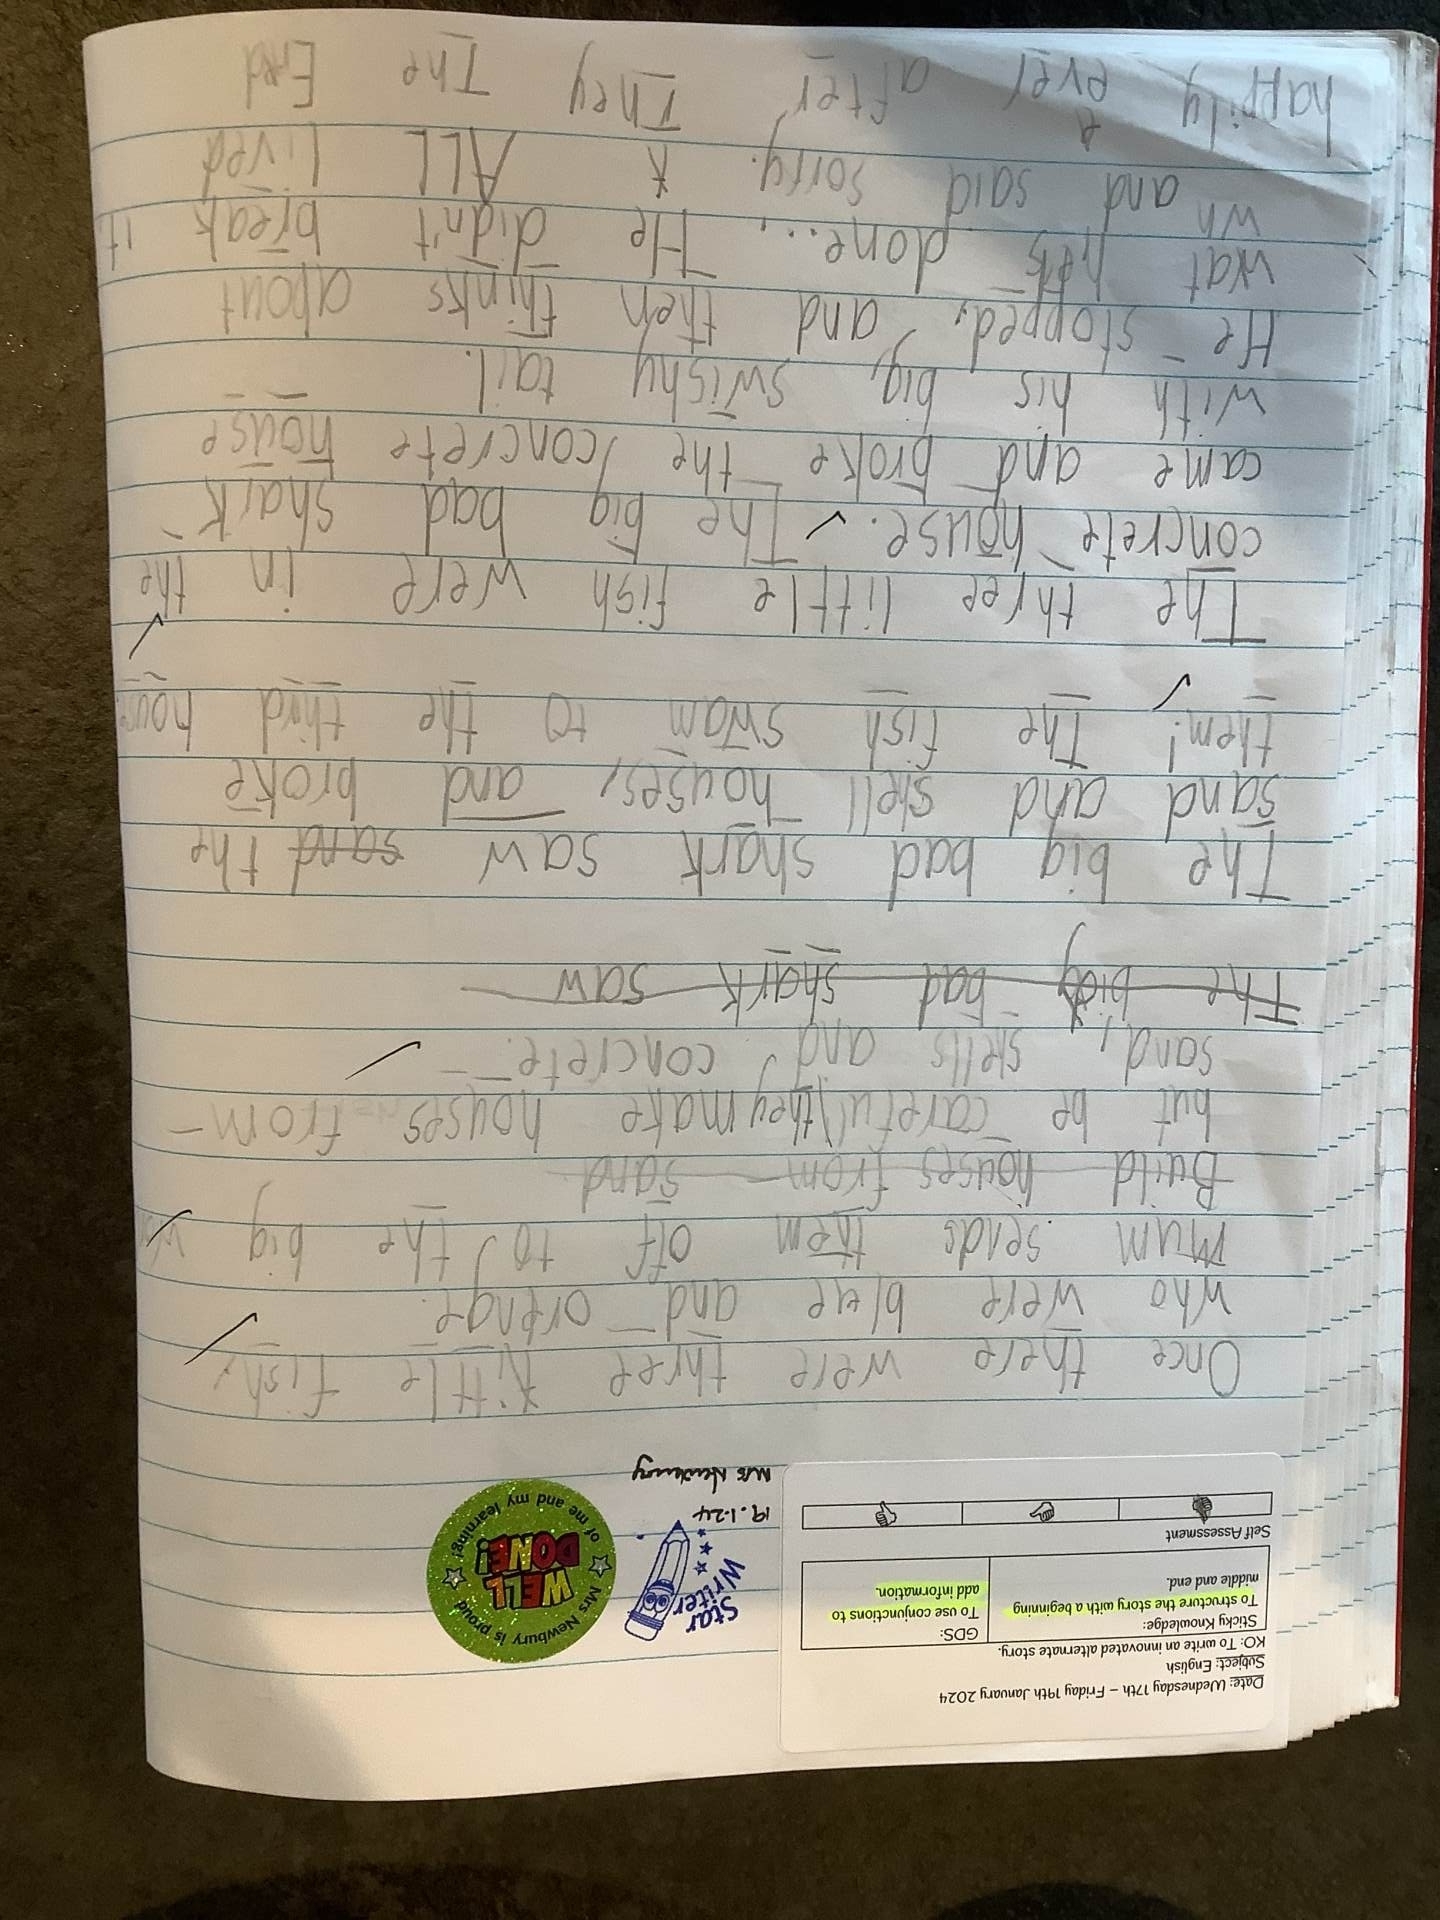 Date: Wednesday 17th – Friday 19th January 2024
Subject: English
KO: To write an innovated alternate story.
Sticky Knowledge:
To structure the story with a beginning
middle and end.
GDS:
To use conjunctions to
add information.
Self Assessment
Star
Writer
19.1.24
Mrs Newbury
Mrs Newbury is proud
WELL
DONE!
of me and my learning!
Once there were three little fish,
who were blue and orenge.
mum sends them off to the big
Build houses from sand
but be careful they make houses from
sand, shells and concrete.
The bigy bad shark saw
The big bad shark saw sand the
sand and shell houses, and broke
them! The fish swam to the third house
The three little fish were in the
concrete house. The big bad shark
came and broke the concrete house
with his big, swishy tail.
He stopped, and then thinks about
wat hes done... He didn't break it
wh and said sorry. ALL Lived
happily ever after They The End